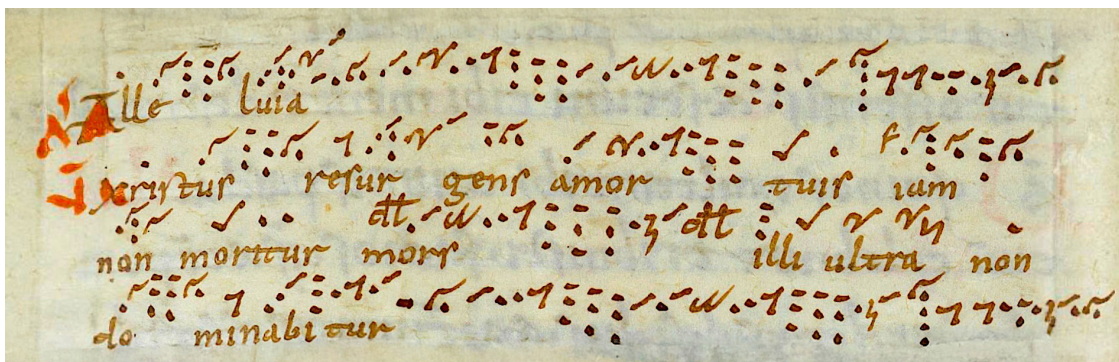 Alle luia
xpistus resur gens amor tuis iam
non moritur mors illi ultra non
do minabitur